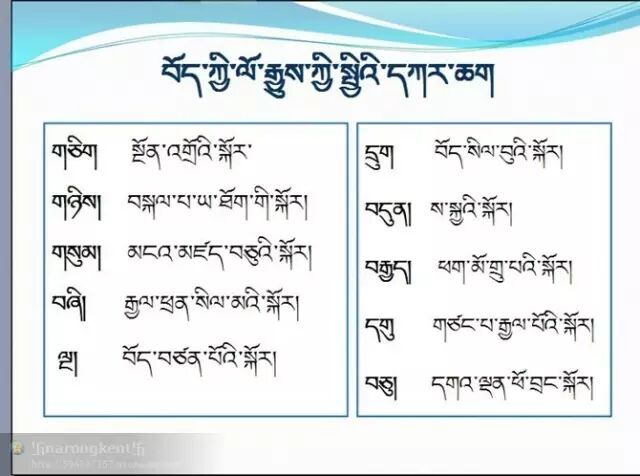 བོད་ཀྱི་ལོ་རྒྱུས་ཀྱི་སྤྱིའི་དཀར་ཆག
གཅིག སྔོན་འགྲོའི་སྐོར་
གཉིས། བསྐལ་པ་ཡ་ཐོག་གི་སྐོར།
གསུམ། མངའ་མཛད་བཅུའི་སྐོར།
བཞི། རྒྱལ་ཕྲན་སིལ་མའི་སྐོར།
ལྔ། བོད་བཙན་པོའི་སྐོར།
དྲུག བོད་སིལ་བུའི་སྐོར།
བདུན། ས་སྐྱའི་སྐོར།
བརྒྱད། ཕག་མོ་གྲུ་པའི་སྐོར།
དགུ གཙང་པ་རྒྱལ་པོའི་སྐོར།
བཅུ། དགའ་ལྡན་ཕོ་བྲང་སྐོར།
卐narongkent卐